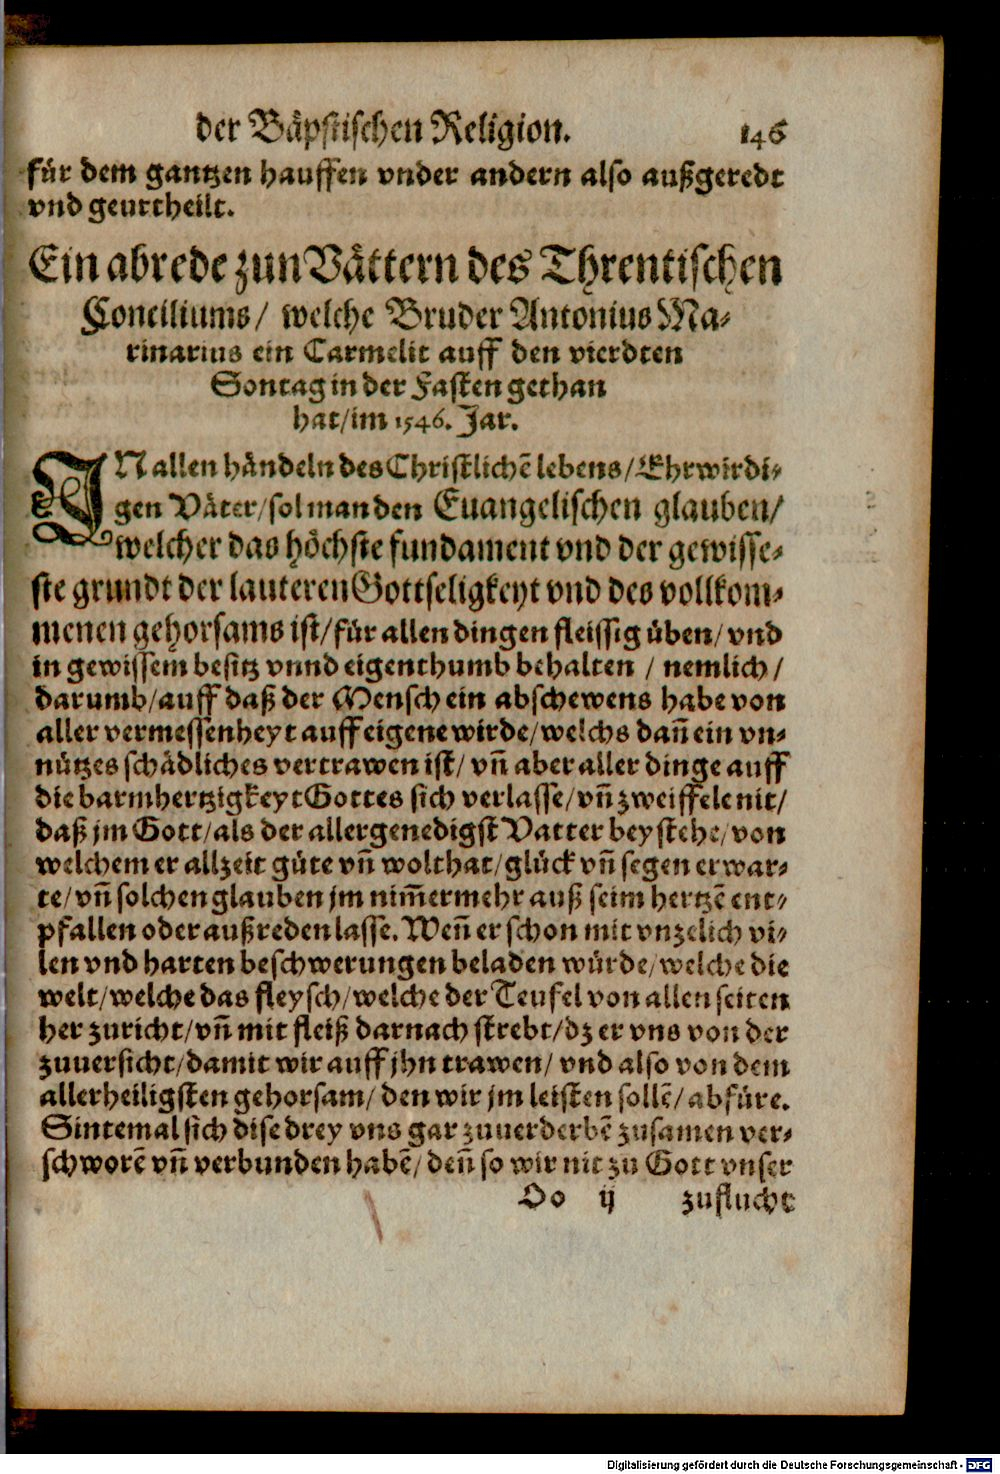 der Bäpstischen Religion. 146
für dem gantzen hauffen vnder andern also außgeredt
vnd geurtheilt.
Ein abrede zun Vättern des Threntischen
Conciliums/ welche Bruder Antonius Ma-
rinarius ein Carmelit auff den vierdten
Sontag in der Fasten gethan
hat/im 1546. Jar.
IN allen händeln des Christlichē lebens/Ehrwirdi-
gen Väter/sol man den Euangelischen glauben/
welcher das höchste fundament vnd der gewisse-
ste grundt der lauteren Gottseligkeyt vnd des vollkom-
menen gehorsams ist/für allen dingen fleissig üben/vnd
in gewissem besitz vnnd eigenthumb behalten / nemlich/
darumb/auff daß der Mensch ein abschewens habe von
aller vermessenheyt auff eigene wirde/welchs dañ ein vn-
nützes schädliches vertrawen ist/ vñ aber aller dinge auff
die barmhertzigkeyt Gottes sich verlasse/vñ zweiffele nit/
daß jm Gott/als der allergenedigst Vatter beystehe/von
welchem er allzeit güte vñ wolthat/glück vñ segen erwar-
te/vñ solchen glauben jm nim̃ermehr auß seim hertzē ent-
pfallen oder außreden lasse. Weñ er schon mit vnzelich vi-
len vnd harten beschwerungen beladen würde/welche die
welt/welche das fleysch/welche der Teufel von allen seiten
her zuricht/vñ mit fleiß darnach strebt/dz er vns von der
zuuersicht/damit wir auff jhn trawen/ vnd also von dem
allerheiligsten gehorsam/ den wir jm leisten sollē/abfüre.
Sintemal sich dise drey vns gar zuuerderbē zusamen ver-
schworē vñ verbunden habē/deñ so wir nit zu Gott vnser
Oo ij zuflucht
Digitalisierung gefördert durch die Deutsche Forschungsgemeinschaft - DFG